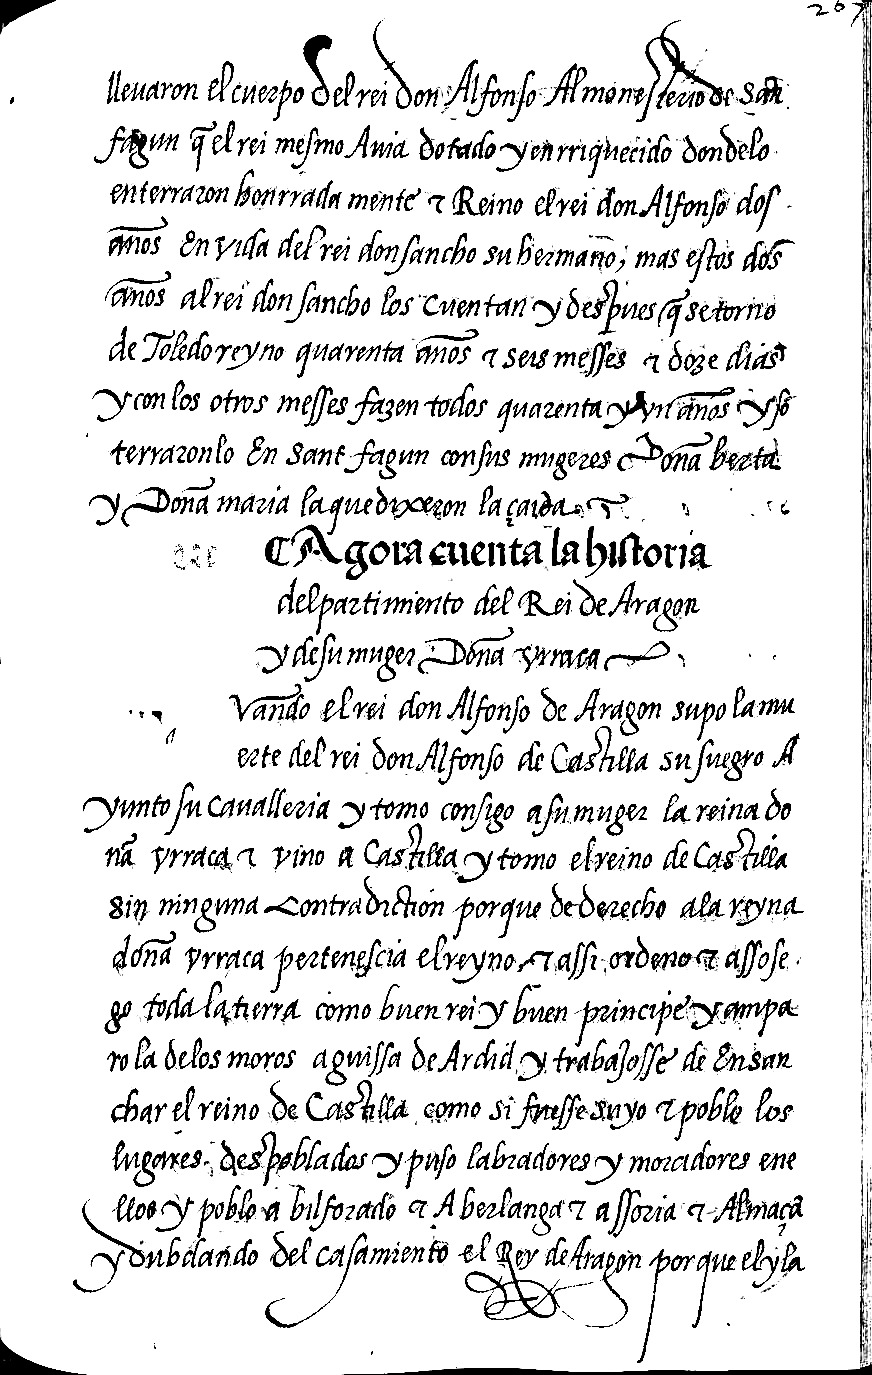 267
llevaron el cuerpo del rei don Alfonso Al monesterio de San
fagun q̃ el rei mesmo Auia dotado y enrriquecido donde lo
enterraron honrrada mente τ Reino el rei don Alfonso dos
años En vida del rei don sancho su hermano; mas estos dos
años al rei don sancho los cuentan y despues q̃ se torno
de Toledo reyno quarenta años τ seis messes τ doze dias
y con los otros messes fazen todos quarenta y vn años y so
terraronlo En Sant fagun con sus mugeres Doña berta
y Doña maria la que dixeron la çaida
Agora cuenta la historia
del partimiento del Rei de Aragon
y de su muger Doña vrraca
Vando el rei don Alfonso de Aragon supo la mu
erte del rei don Alfonso de Castilla su suegro A
yunto su cavalleria y tomo consigo a su muger la reina do
ña vrraca τ vino a Castilla y tomo el reino de Castilla
Sin ninguna contradiction porque de derecho a la reyna
doña vrraca pertenescia el reyno τ assi ordeno τ assose
go toda la tierra como buen rei y buen principe y ampa
ro la de los moros a guissa de Ardid y trabajosse de Ensan
char el reino de Castilla como si fuesse suyo τ poblo los
lugares despoblados y puso labradores y moradores en e
llos y poblo a bilforado τ A berlanga τ a ssoria τ Almaça
y dubdando del casamiento el Rey de Aragon porque el y la